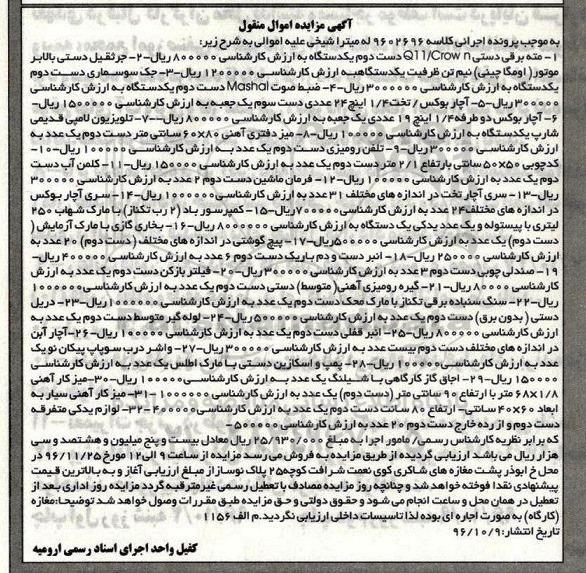 آگهی مزایده اموال منقول
به موجب پرونده اجرائی کلاسه ۹۶۰۲۶۹۶ له میترا شیخی علیه اموالی به شرح زیر:
۱- مته برقی دستی Q11/Crown دست دوم یکدستگاه به ارزش کارشناسی ۸۰۰۰۰۰ ریال-۲- جرثقیل دستی بالابر
موتور ( اومگا چینی) نیم تن ظرفیت یکدستگاهبه ارزش کارشناسی ۱۲۰۰۰۰۰ ریال-۳-جک سوسماری دست دوم
یکدستگاه به ارزش کارشناسی ۳۰۰۰۰۰۰ریال-۴- ضبط صوت Mashal دست دوم یکدستگاه به ارزش کارشناسی
۳۰۰۰۰۰ ریال-۵- آچار بوکس / تخت۱/۴ اینچ۲۴ عددی دست سوم یک جعبه به ارزش کارشناسی ۱۵۰۰۰۰۰ ریال-
۶- آچار بوکس دو طرفه۱/۴ اینچ ۱۹ عددی یک جعبه به ارزش کارشناسی ۸۰۰۰۰۰ ریال--۷- تلویزیون لامپی قدیمی
شارپ یکدستگاه به ارزش کارشناسی ۱۰۰۰۰۰ ریال-۸- میز دفتری آهنی ۸۰×۶۰ سانتی متر دست دوم یک عدد به
ارزش کارشناسی ۳۰۰۰۰۰ریال-۹- تلفن رومیزی دست دوم یک عدد به ارزش کارشناسی ۱۰۰۰۰۰ ریال-۱۰-
کدچوبی ۵۰×۵۰ سانتی بارتفاع ۲/۱ متر دست دوم یک عدد به ارزش کارشناسی ۱۵۰۰۰۰ ریال-۱۱- کلمن آب دست
دوم یک عدد به ارزش کارشناسی ۱۰۰۰۰۰ ریال-۱۲- فرمان ماشین دست دوم ۲ عدد به ارزش کارشناسی ۳۰۰۰۰۰
ریال-۱۳- سری آچار تخت در اندازه های مختلف ۳۱ عدد به ارزش کارشناسی۱۰۰۰۰۰۰ ریال-۱۴- سری آچار بوکس
در اندازه های مختلف۲۴ عدد به ارزش کارشناسی ۷۰۰۰۰۰ریال-۱۵- کمپرسور باد (۲ رب تکناز) با مارک شهاب ۲۵۰
لیتری با پیستوله و یک عدد یدکی یک دستگاه به ارزش کارشناسی ۸۰۰۰۰۰۰ ریال-۱۶- بخاری گازی با مارک آزمایش (
دست دوم) یک عدد به ارزش کارشناسی ۵۰۰۰۰۰ریال-۱۷- پیچ گوشتی در اندازه های مختلف ( دست دوم) ۲۰ عدد به
ارزش کارشناسی ۲۵۰۰۰۰ ریال-۱۸- انبر دست و دم باریک دست دوم ۶ عدد به ارزش کارشناسی ۴۰۰۰۰۰ ریال-
۱۹- صندلی چوبی دست دوم ۳ عدد به ارزش کارشناسی ۳۰۰۰۰۰ ریال-۲۰- فیلتر بازکن دست دوم یک عدد به ارزش
کارشناسی ۸۰۰۰۰ ریال-۲۱- گیره رومیزی آهنی( متوسط) دستی دست دوم یک عدد به ارزش کارشناسی۱۰۰۰۰۰۰
ریال-۲۲- سنگ سنباده برقی تکناز با مارک محک دست دوم یک عدد به ارزش کارشناسی ۱۰۰۰۰۰۰ ریال-۲۳- دریل
دستی ( بدون برق) دست دوم یک عدد به ارزش کارشناسی ۵۰۰۰۰۰ ریال-۲۴- لوله گیر متوسط دست دوم یک عدد به
ارزش کارشناسی ۸۰۰۰۰۰ ریال-۲۵- انبر قفلی دست دوم یک عدد به ارزش کارشناسی ۱۰۰۰۰۰ ریال-۲۶-آچار آلن
در اندازه های مختلف دست دوم بیست عدد به ارزش کارشناسی ۳۰۰۰۰۰ ریال-۲۷- واشر درب سوپاپ پیکان نو یک
عدد به ارزش کارشناسی ۱۰۰۰۰۰ ریال-۲۸- پمپ و اسکازین دستی با مارک اطلس یک عدد به ارزش کارشناسی
۱۵۰۰۰۰ ریال-۲۹- اجاق گاز کارگاهی با شیلنگ یک عدد به ارزش کارشناسی۱۰۰۰۰۰ ریال-۳۰- میز کار آهنی
۶۸×۱/۸ متر با ارتفاع ۹۰ سانتی متر (دست دوم) یک عدد به ارزش کارشناسی ۱۰۰۰۰۰۰ -۳۱- میز کار آهنی سیار به
ابعاد ۶۰×۴۰ سانتی- ارتفاع ۸۰ سانت دست دوم یک عدد به ارزش کارشناسی ۴۰۰۰۰۰-۳۲- لوازم یدکی متفرقه
دست دوم و از رده خارج دست دوم ۲۰ عدد به ارزش کارشناسی ۵۰۰۰۰۰-
که برابر نظریه کارشناس رسمی/ مامور اجرا به مبلغ ۲۵/۹۳۰/۰۰۰ ریال معادل بیست و پنج میلیون و هشتصد و سی
هزار ریال می باشد ارزیابی گردیده از طریق مزایده به فروش می رسد مزایده از ساعت ۹ الی۱۲ مورخ ۹۶/۱۱/۲۵ در
محل خ ابوذر پشت مغازه های شاکری کوی نعمت شرافت کوچه۲۵ پلاک نوساز از مبلغ ارزیابی آغاز و به بالاترین قیمت
پیشنهادی نقدا فوخته خواهد شد و چنانچه روز مزایده مصادف با تعطیل رسمی غیرمترقبه گردد مزایده روز اداری بعد از
تعطیل در همان محل و ساعت انجام می شود و حقوق دولتی و حق مزایده طبق مقررات وصول خواهد شد توضیحا:مغازه
(کارگاه) به صورت اجاره ای بوده لذا تاسیسات داخلی ارزیابی نگردید.م الف ۱۱۵۶
تاریخ انتشار:۹۶/۱۰/۹
کفیل واحد اجرای اسناد رسمی ارومیه